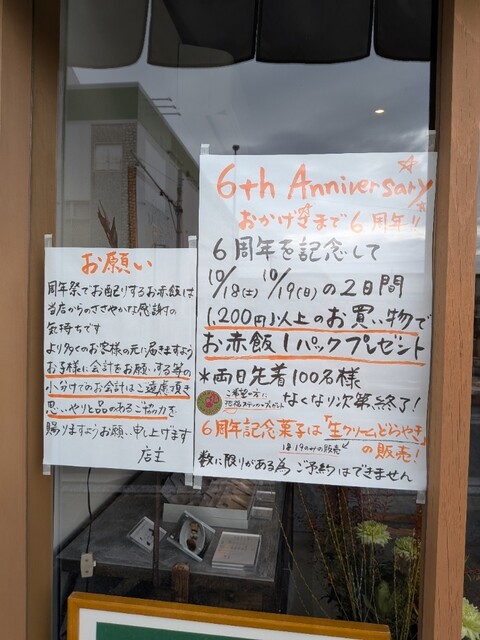 6th Anniversary
おかげさまで6周年!!
6周年を記念して
10/18(土) 10/19(日)の2日間
1,200円以上のお買い物で
お赤飯1パックプレゼント
*両日先着100名様
なくなり次第終了!
6周年記念菓子は「生クリームどらやき」
18.19のみの販売 の販売!
数に限りがある為 ご予約はできません
お願い
周年祭でお配りするお赤飯は
当店からのささやかな感謝の
気持ちです
より多くのお客様の元に届きますよう
お子様に会計をお願いする等の
小分けでのお会計はご遠慮頂き
思いやりと品のあるご協力を
賜りますようお願い申し上げます
店主